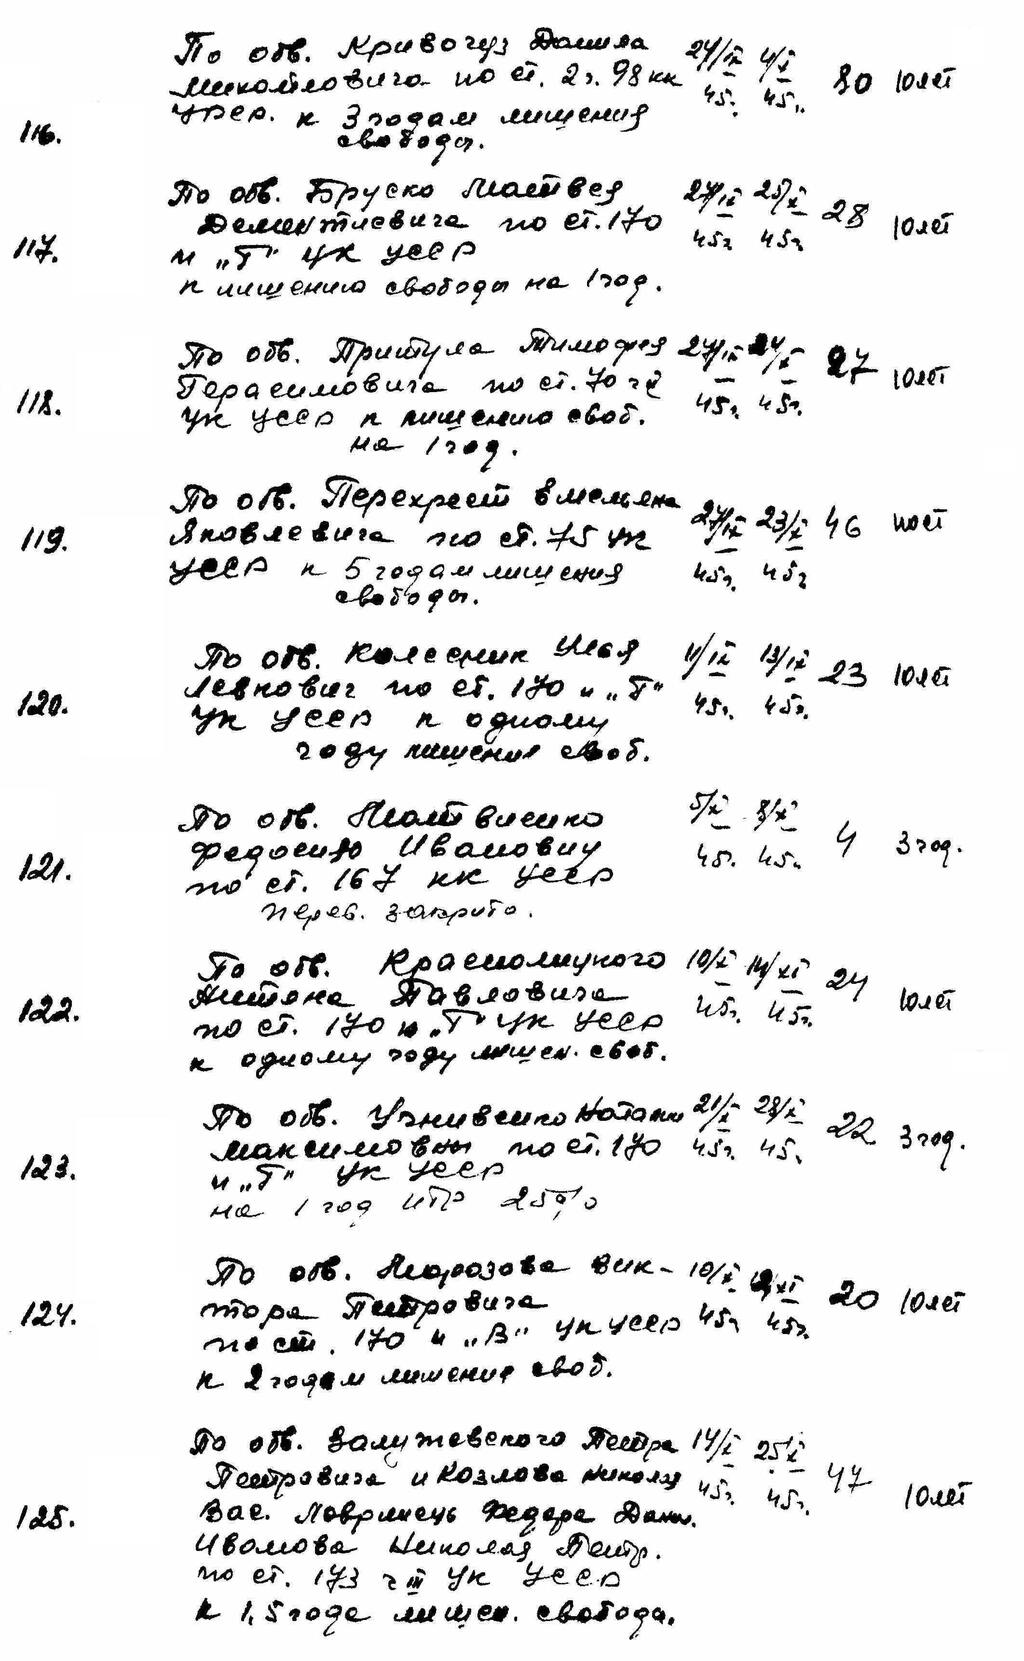 По обв. Кривочуз Данила 24/IX 4/X 80 10лет
Михайловича по ст. 2ч. 98 кк 45г. 45г.
УССР. к 3 годам лишения
116.
свободы.
По обв. Бруско Матвея 24/IX 25/X 28 10лет
Дементиевича по ст. 170 45г 45г
117. и „Г" УК УССР
к лишению свободы на 1 год.
По обв. Притула Тимофея 24/IX 24/X 27 10лет
Герасимовича по ст. 70 ч 2 45г. 45г.
118. УК УССР к лишению своб.
на 1 год.
По обв. Перехрест Вмельяна 27/IX 23/X 46 10лет
119. Яковлевича по ст. 75 УК
УССР к 5 годам лишения 45г. 45г
свободы.
По обв. Колесник Илья 11/IX 13/IX 23 10лет
120. Левкович по ст. 170 и „Г" 45г. 45г.
УК УССР к одному
году лишения своб.
По обв. Матвиенко 5/X 8/X 4 3 год.
121. Федосию Ивановну 45г. 45г.
по ст. 167 кк УССР
перев. закрито.
По обв. Краснолуцкого 10/X 14/XI 24 10лет
122. Антона Павловича 45г. 45г.
по ст. 170 и „Г" УК УССР
к одному году лишен. своб.
По обв. Ужнивенко Наталии 21/X 28/X 22 3 год.
123. Максимовны по ст. 170 45г. 45г.
и „Г" УК УССР
на 1 год ИТР 25%
По обв. Морозова Вик- 10/X 12/XI 20 10лет
124. тора Петровича 45г 45г.
по ст. 170 и „В" УК УССР
к 2 годам лишения своб.
По обв. Залужевского Петра 14/X 25/X 47 10лет
Петровича и Козлова Николая 45г. 45г.
125. Вас. Лавринець Федора Дани.
Иванова Николая Петр.
по ст. 173 ч III УК УССР
к 1,5 годе лишен. свобода.